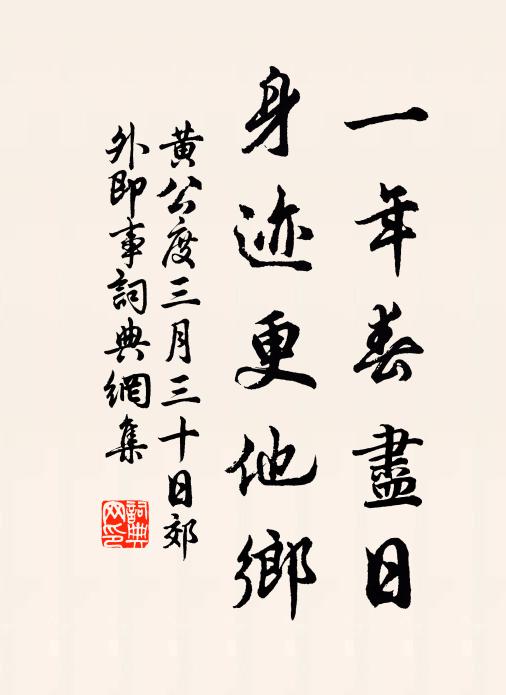 一年春盡日
身迹更他鄉
黄公度三月三十日郊
外即事詞典網集
詞典网印